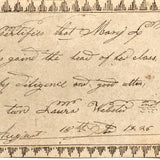 ertifies that Mary L
gains the head of her class
by diligence and good atten
tion Laura Webster
August 18th 1835